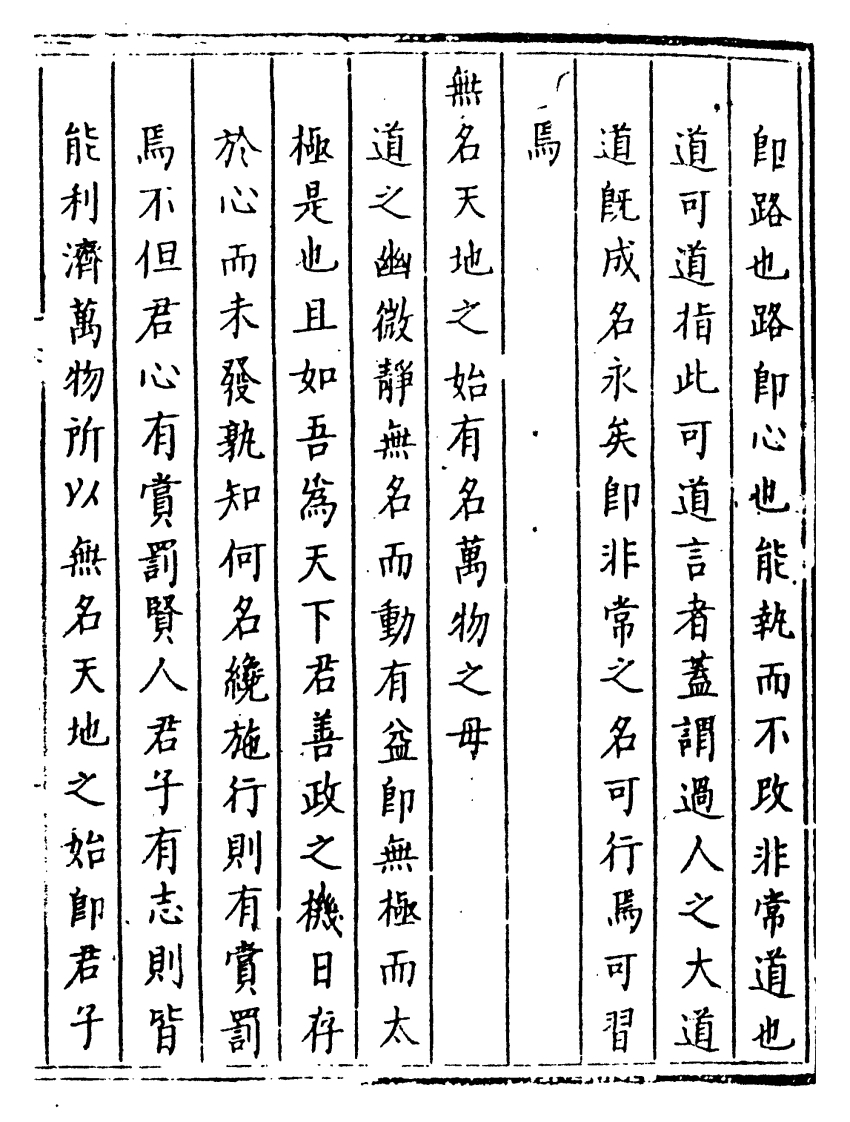 即路也路即心也能執而不改非常道也
道可道指此可道言者蓋謂過人之大道
道旣成名永矣即非常之名可行焉可習
焉
無名天地之始有名萬物之母
道之幽微靜無名而動有益即無極而太
極是也且如吾爲天下君善政之機日存
於心而未發孰知何名纔施行則有賞罰
焉不但君心有賞罰賢人君子有志則皆
能利濟萬物所以無名天地之始即君子